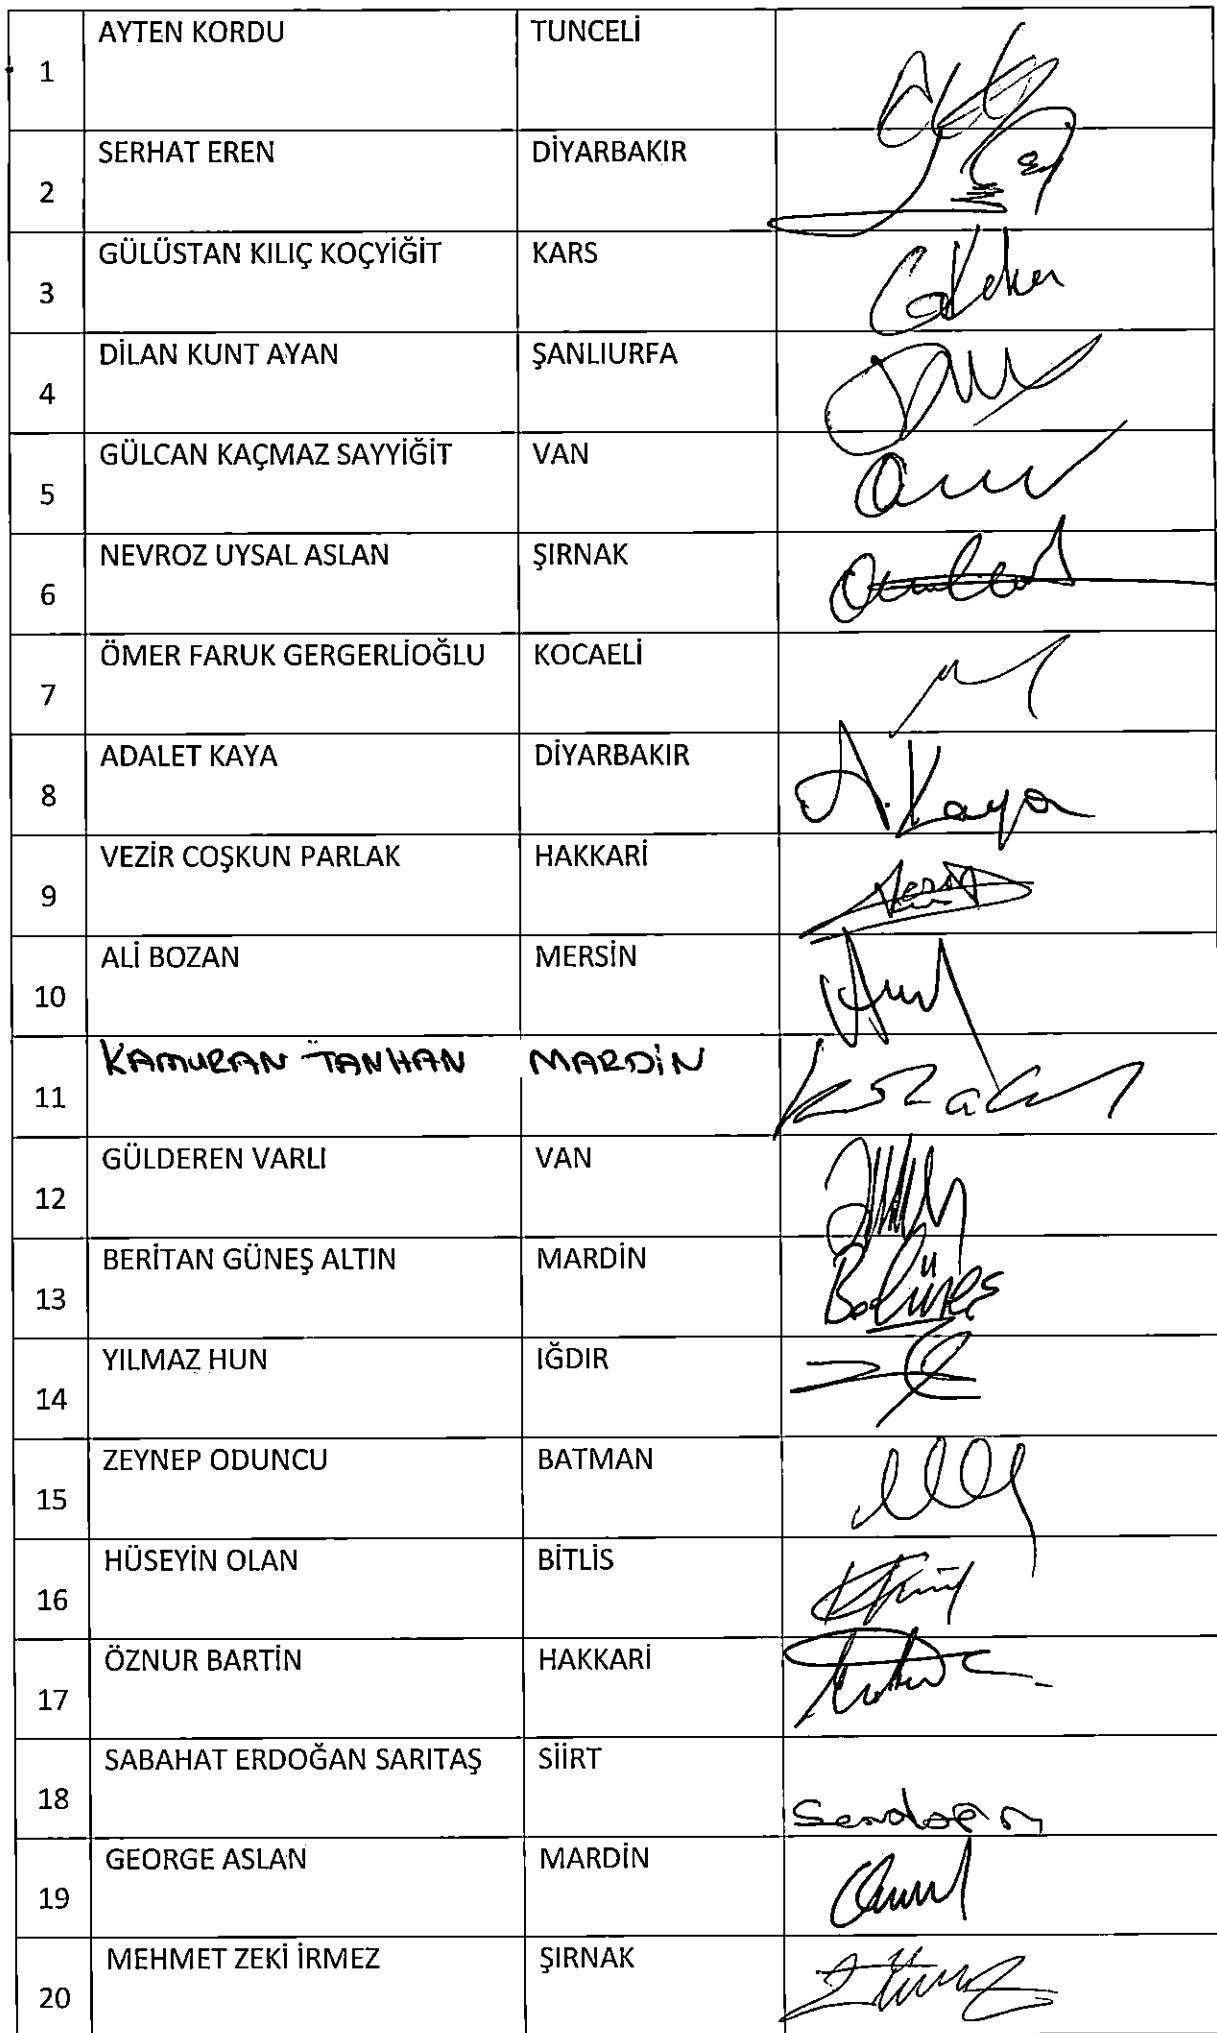 1 AYTEN KORDU TUNCELİ
2 SERHAT EREN DİYARBAKIR
3 GÜLÜSTAN KILIÇ KOÇYİĞİT KARS
4 DİLAN KUNT AYAN ŞANLIURFA
5 GÜLCAN KAÇMAZ SAYYİĞİT VAN
6 NEVROZ UYSAL ASLAN ŞIRNAK
7 ÖMER FARUK GERGERLİOĞLU KOCAELİ
8 ADALET KAYA DİYARBAKIR A.Kaya
9 VEZİR COŞKUN PARLAK HAKKARİ
10 ALİ BOZAN MERSİN
11 KAMURAN TANHAN MARDİN
12 GÜLDEREN VARLI VAN
13 BERİTAN GÜNEŞ ALTIN MARDİN
14 YILMAZ HUN IĞDIR
15 ZEYNEP ODUNCU BATMAN
16 HÜSEYİN OLAN BİTLİS
17 ÖZNUR BARTİN HAKKARİ
18 SABAHAT ERDOĞAN SARITAŞ SİİRT
19 GEORGE ASLAN MARDİN
20 MEHMET ZEKİ İRMEZ ŞIRNAK